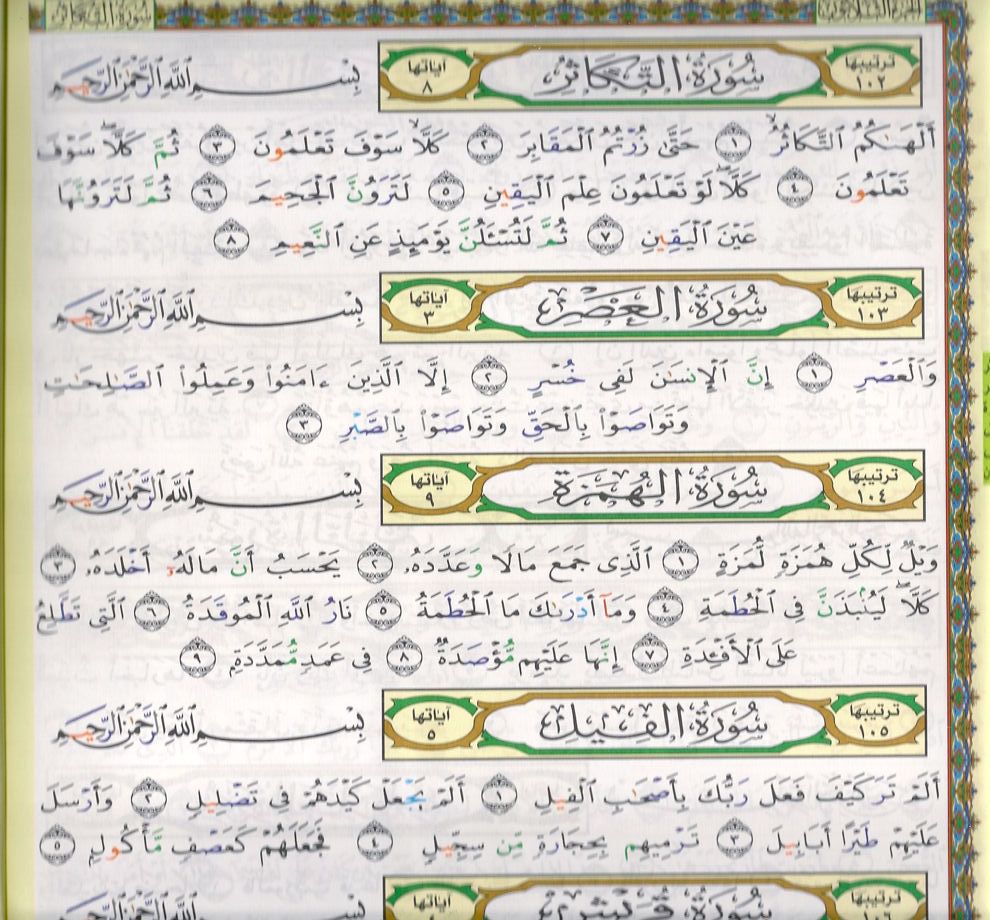 الجزء الثلاثون
سورة التكاثر
ترتيبها ١٠٢
سُورَةُ التَّكَاثُرِ
آياتها ٨
بِسْمِ ٱللَّهِ ٱلرَّحْمَٰنِ ٱلرَّحِيمِ
أَلْهَىٰكُمُ ٱلتَّكَاثُرُ ١ حَتَّىٰ زُرْتُمُ ٱلْمَقَابِرَ ٢ كَلَّا سَوْفَ تَعْلَمُونَ ٣ ثُمَّ كَلَّا سَوْفَ
تَعْلَمُونَ ٤ كَلَّا لَوْ تَعْلَمُونَ عِلْمَ ٱلْيَقِينِ ٥ لَتَرَوُنَّ ٱلْجَحِيمَ ٦ ثُمَّ لَتَرَوُنَّهَا
عَيْنَ ٱلْيَقِينِ ٧ ثُمَّ لَتُسْـَٔلُنَّ يَوْمَئِذٍ عَنِ ٱلنَّعِيمِ ٨
ترتيبها ١٠٣
سُورَةُ الْعَصْرِ
آياتها ٣
بِسْمِ ٱللَّهِ ٱلرَّحْمَٰنِ ٱلرَّحِيمِ
وَٱلْعَصْرِ ١ إِنَّ ٱلْإِنسَٰنَ لَفِى خُسْرٍ ٢ إِلَّا ٱلَّذِينَ ءَامَنُوا۟ وَعَمِلُوا۟ ٱلصَّٰلِحَٰتِ
وَتَوَاصَوْا۟ بِٱلْحَقِّ وَتَوَاصَوْا۟ بِٱلصَّبْرِ ٣
ترتيبها ١٠٤
سُورَةُ الْهُمَزَةِ
آياتها ٩
بِسْمِ ٱللَّهِ ٱلرَّحْمَٰنِ ٱلرَّحِيمِ
وَيْلٌ لِّكُلِّ هُمَزَةٍ لُّمَزَةٍ ١ ٱلَّذِى جَمَعَ مَالًا وَعَدَّدَهُۥ ٢ يَحْسَبُ أَنَّ مَالَهُۥٓ أَخْلَدَهُۥ ٣
كَلَّا لَيُنۢبَذَنَّ فِى ٱلْحُطَمَةِ ٤ وَمَآ أَدْرَىٰكَ مَا ٱلْحُطَمَةُ ٥ نَارُ ٱللَّهِ ٱلْمُوقَدَةُ ٦ ٱلَّتِى تَطَّلِعُ
عَلَى ٱلْأَفْـِٔدَةِ ٧ إِنَّهَا عَلَيْهِم مُّؤْصَدَةٌ ٨ فِى عَمَدٍ مُّمَدَّدَةٍۭ ٩
ترتيبها ١٠٥
سُورَةُ الْفِيلِ
آياتها ٥
بِسْمِ ٱللَّهِ ٱلرَّحْمَٰنِ ٱلرَّحِيمِ
أَلَمْ تَرَ كَيْفَ فَعَلَ رَبُّكَ بِأَصْحَٰبِ ٱلْفِيلِ ١ أَلَمْ يَجْعَلْ كَيْدَهُمْ فِى تَضْلِيلٍ ٢ وَأَرْسَلَ
عَلَيْهِمْ طَيْرًا أَبَابِيلَ ٣ تَرْمِيهِم بِحِجَارَةٍ مِّن سِجِّيلٍ ٤ فَجَعَلَهُمْ كَعَصْفٍ مَّأْكُولٍۭ ٥
ترتيبها
سُورَةُ قُرَيْشٍ
آياتها
بِسْمِ ٱللَّهِ ٱلرَّحْمَٰنِ ٱلرَّحِيمِ